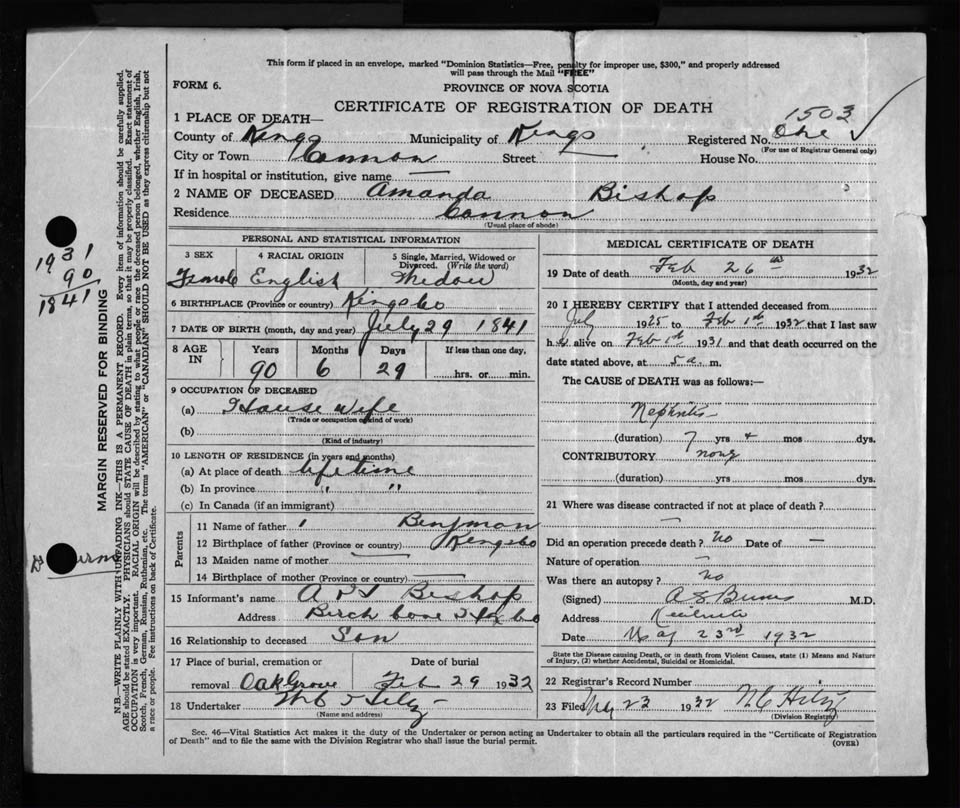 This form if placed in an envelope, marked "Dominion Statistics—Free, penalty for improper use, $300," and properly addressed
will pass through the Mail "FREE"
FORM 6.
PROVINCE OF NOVA SCOTIA
CERTIFICATE OF REGISTRATION OF DEATH
1503
1 PLACE OF DEATH—
County of Kings Municipality of Kings Registered No. One
(For use of Registrar General only)
City or Town Cannon Street — House No.
If in hospital or institution, give name —
2 NAME OF DECEASED Amanda Bishop
Residence Cannon
(Usual place of abode)
PERSONAL AND STATISTICAL INFORMATION
3 SEX 4 RACIAL ORIGIN 5 Single, Married, Widowed or Divorced. (Write the word)
Female English Widow
6 BIRTHPLACE (Province or country) Kings Co
7 DATE OF BIRTH (month, day and year) July 29 1841
8 AGE IN Years Months Days If less than one day,
90 6 29 hrs. or min.
9 OCCUPATION OF DECEASED
(a) House Wife
(Trade or occupation or kind of work)
(b)
(Kind of industry)
10 LENGTH OF RESIDENCE (in years and months)
(a) At place of death life time
(b) In province " "
(c) In Canada (if an immigrant)
Parents
11 Name of father Benjman
12 Birthplace of father (Province or country) Kings Co
13 Maiden name of mother —
14 Birthplace of mother (Province or country) —
15 Informant's name Bishop
Address Birch
16 Relationship to deceased Son
17 Place of burial, cremation or removal Oak Grove Date of burial Feb 29 1932
18 Undertaker
(Name and address)
MEDICAL CERTIFICATE OF DEATH
19 Date of death Feb 26th 1932
(Month, day and year)
20 I HEREBY CERTIFY that I attended deceased from
July 1925 to Feb 1st 1932 that I last saw
h er alive on Feb 1st 1931 and that death occurred on the
date stated above, at 5 a. m.
The CAUSE of DEATH was as follows:—
Nephritis
(duration) 7 yrs + mos dys.
CONTRIBUTORY none
(duration) yrs mos dys.
21 Where was disease contracted if not at place of death?
—
Did an operation precede death? no Date of —
Nature of operation —
Was there an autopsy? no
(Signed) Burns M.D.
Address Kentville
Date May 23rd 1932
State the Disease causing Death, or in death from Violent Causes, state (1) Means and Nature
of Injury, (2) whether Accidental, Suicidal or Homicidal.
22 Registrar's Record Number
23 Filed May 23 1932
(Division Registrar)
Sec. 46—Vital Statistics Act makes it the duty of the Undertaker or person acting as Undertaker to obtain all the particulars required in the "Certificate of Registration
of Death" and to file the same with the Division Registrar who shall issue the burial permit.
(OVER)
MARGIN RESERVED FOR BINDING
N.B.—WRITE PLAINLY WITH UNFADING INK—THIS IS A PERMANENT RECORD. Every item of information should be carefully supplied.
AGE should be stated EXACTLY. PHYSICIANS should STATE CAUSE OF DEATH in plain terms, so that it may be properly classified. Exact statement of
OCCUPATION is very important. RACIAL ORIGIN will be described by stating to what people or race the deceased person belonged, whether English, Irish,
Scotch, French, German, Russian, Ruthenian, etc. The terms "AMERICAN" or "CANADIAN" SHOULD NOT BE USED as they express citizenship but not
a race or people. See instructions on back of Certificate.
1931
90
1841